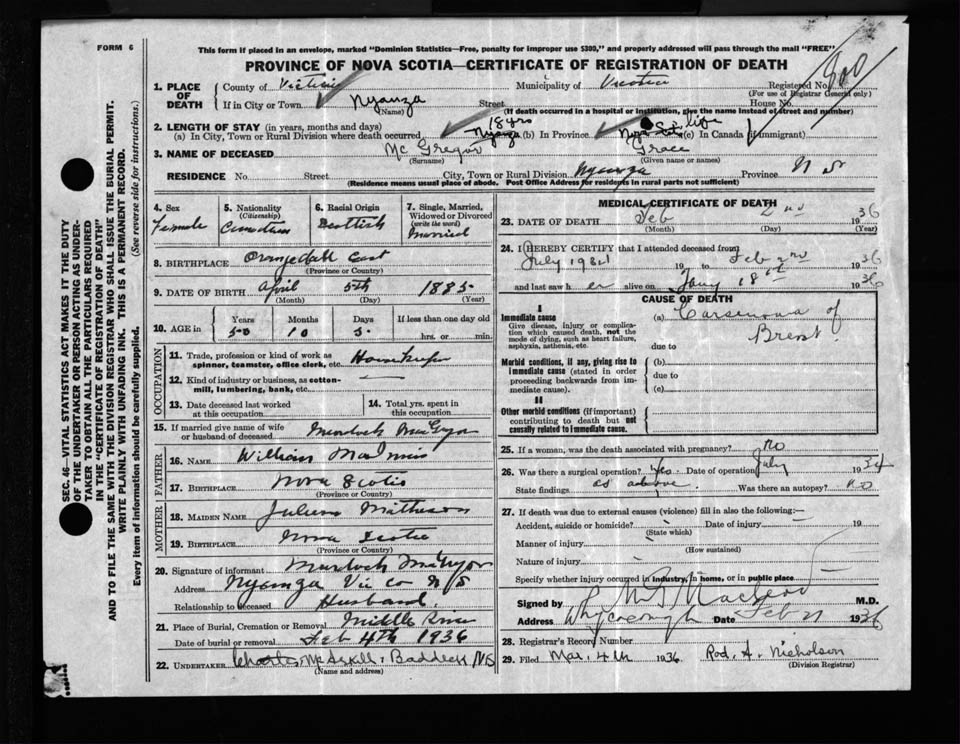 FORM 6
This form if placed in an envelope, marked "Dominion Statistics—Free, penalty for improper use $300," and properly addressed will pass through the mail "FREE"
PROVINCE OF NOVA SCOTIA—CERTIFICATE OF REGISTRATION OF DEATH
1. PLACE OF DEATH
County of Victoria Municipality of Victoria Registered No. 800
(For use of Registrar General only)
If in City or Town Nyanza Street House No.
(Name) (If death occurred in a hospital or institution, give the name instead of street and number)
2. LENGTH OF STAY (in years, months and days) 18 yrs life
(a) In City, Town or Rural Division where death occurred Nyanza (b) In Province (c) In Canada (if immigrant)
3. NAME OF DECEASED Mc Gregor Grace
(Surname) (Given name or names)
RESIDENCE No. Street City, Town or Rural Division Nyanza Province N S
(Residence means usual place of abode. Post Office Address for residents in rural parts not sufficient)
4. Sex Female
5. Nationality (Citizenship) Canadian
6. Racial Origin Scottish
7. Single, Married, Widowed or Divorced (write the word) Married
8. BIRTHPLACE Orangedale East
(Province or Country)
9. DATE OF BIRTH April 5th 1885
(Month) (Day) (Year)
10. AGE in Years 50 Months 10 Days If less than one day old hrs. or min.
OCCUPATION
11. Trade, profession or kind of work as spinner, teamster, office clerk, etc. Housekeeper
12. Kind of industry or business, as cotton-mill, lumbering, bank, etc. —
13. Date deceased last worked at this occupation
14. Total yrs. spent in this occupation
15. If married give name of wife or husband of deceased Murdoch MacGregor
FATHER
16. NAME William MacInnis
17. BIRTHPLACE Nova Scotia
(Province or Country)
MOTHER
18. MAIDEN NAME Matheson
19. BIRTHPLACE Nova Scotia
(Province or Country)
20. Signature of informant Murdoch McGregor
Address Nyanza Vic co N/S
Relationship to deceased Husband
21. Place of Burial, Cremation or Removal Middle River
Date of burial or removal Feb 4th 1936
22. UNDERTAKER Charles McAskill Baddeck N.S
(Name and address)
MEDICAL CERTIFICATE OF DEATH
23. DATE OF DEATH Feb 2nd 1936
(Month) (Day) (Year)
24. I HEREBY CERTIFY that I attended deceased from
July 1934 19 to Feb 2nd 1936
and last saw her alive on Jany 18th 1936
CAUSE OF DEATH
I
Immediate cause
Give disease, injury or complication which caused death, not the mode of dying, such as heart failure, asphyxia, asthenia, etc.
(a) Carsenoma of Brest.
due to
Morbid conditions, if any, giving rise to immediate cause (stated in order proceeding backwards from immediate cause).
(b)
due to
(c)
II
Other morbid conditions (if important) contributing to death but not causally related to immediate cause.
25. If a woman, was the death associated with pregnancy? No
26. Was there a surgical operation? Yes. Date of operation July 1934
State findings as above. Was there an autopsy? No
27. If death was due to external causes (violence) fill in also the following:—
Accident, suicide or homicide? Date of injury 19
(State which)
Manner of injury
(How sustained)
Nature of injury
Specify whether injury occurred in industry, in home, or in public place
Signed by MacLeod M.D.
Address Whycocomagh Date Feb 1936
28. Registrar's Record Number
29. Filed Mar. 4th 1936 Rod. A. Nicholson
(Division Registrar)
SEC. 46—VITAL STATISTICS ACT MAKES IT THE DUTY
OF THE UNDERTAKER OR PERSON ACTING AS UNDER-
TAKER TO OBTAIN ALL THE PARTICULARS REQUIRED
IN THE "CERTIFICATE OF REGISTRATION OF DEATH"
AND TO FILE THE SAME WITH THE DIVISION REGISTRAR WHO SHALL ISSUE THE BURIAL PERMIT.
WRITE PLAINLY WITH UNFADING INK. THIS IS A PERMANENT RECORD.
Every item of information should be carefully supplied. (See reverse side for instructions.)